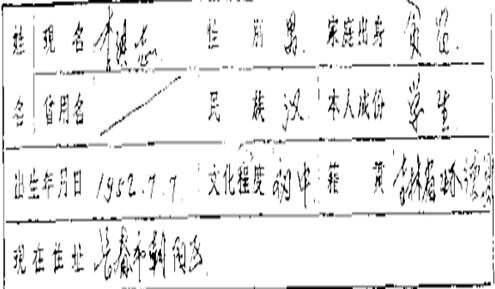 姓 现名 李洪志 性别 男 家庭出身 贫农
名 曾用名 民族 汉 本人成份 学生
出生年月日 1952.7.7 文化程度 初中 籍贯 吉林省
现在住址 长春市朝阳区